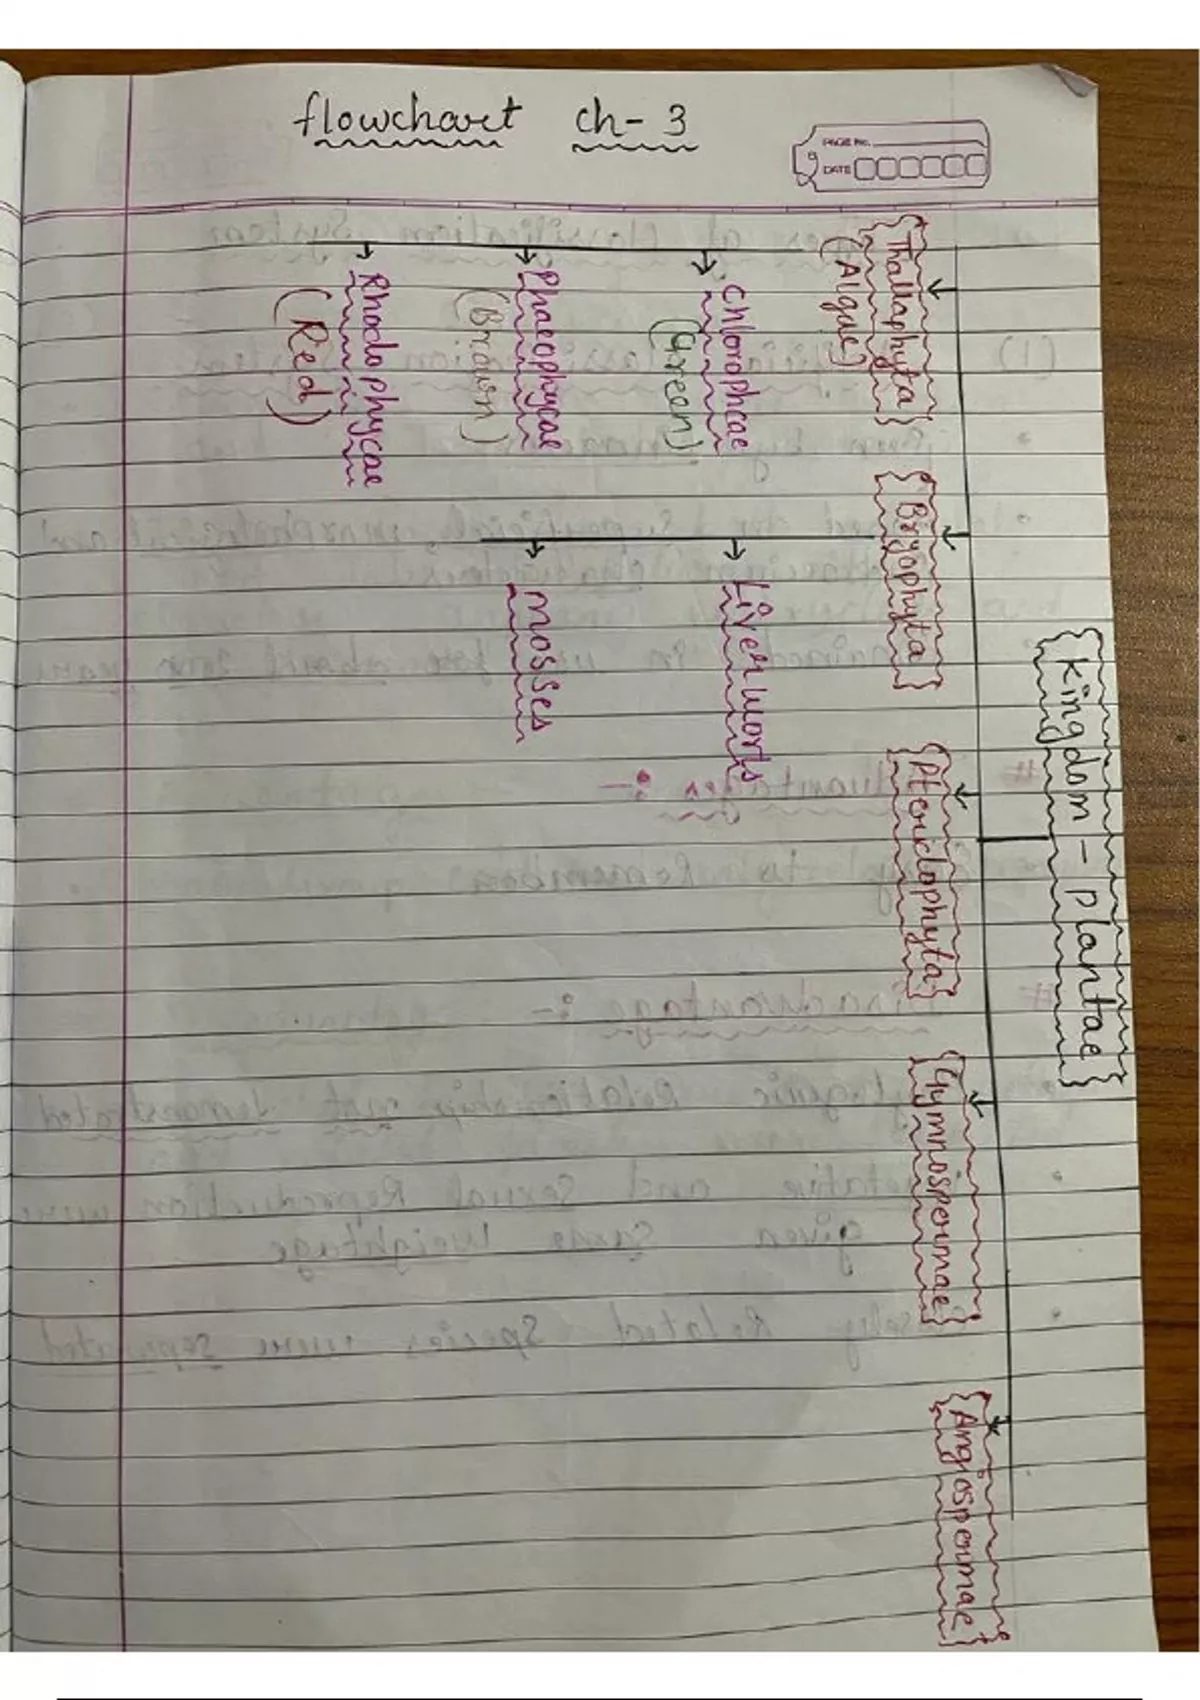 flowchart ch-3
PAGE No.
DATE
{Kingdom - Plantae}
{Thallaphyta}
(Algae)
{Bryophyta}
{Pteridophyta}
{Gymnospermae}
{Angiospermae}
Chlorophcae
(Green)
Phaeophycae
(Brown)
Rhodophycae
(Red)
Liverworts
mosses